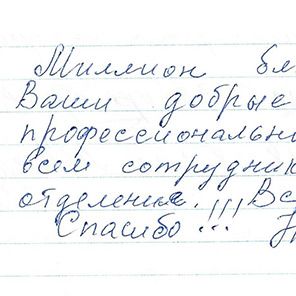 Миллион бл
Ваши добрые
профессиональны
всем сотрудник
отделения. Вс
Спасибо!!!